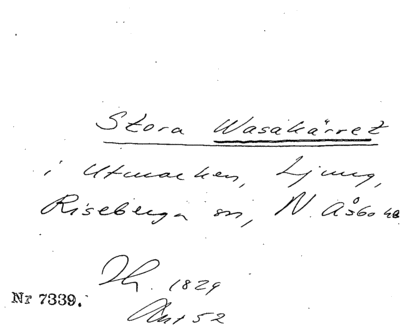 Stora Wasakärret
i Utmarken, Ljung,
Riseberga sn, N. Åsbo hd
1829
Nr 7339.
Akt 52